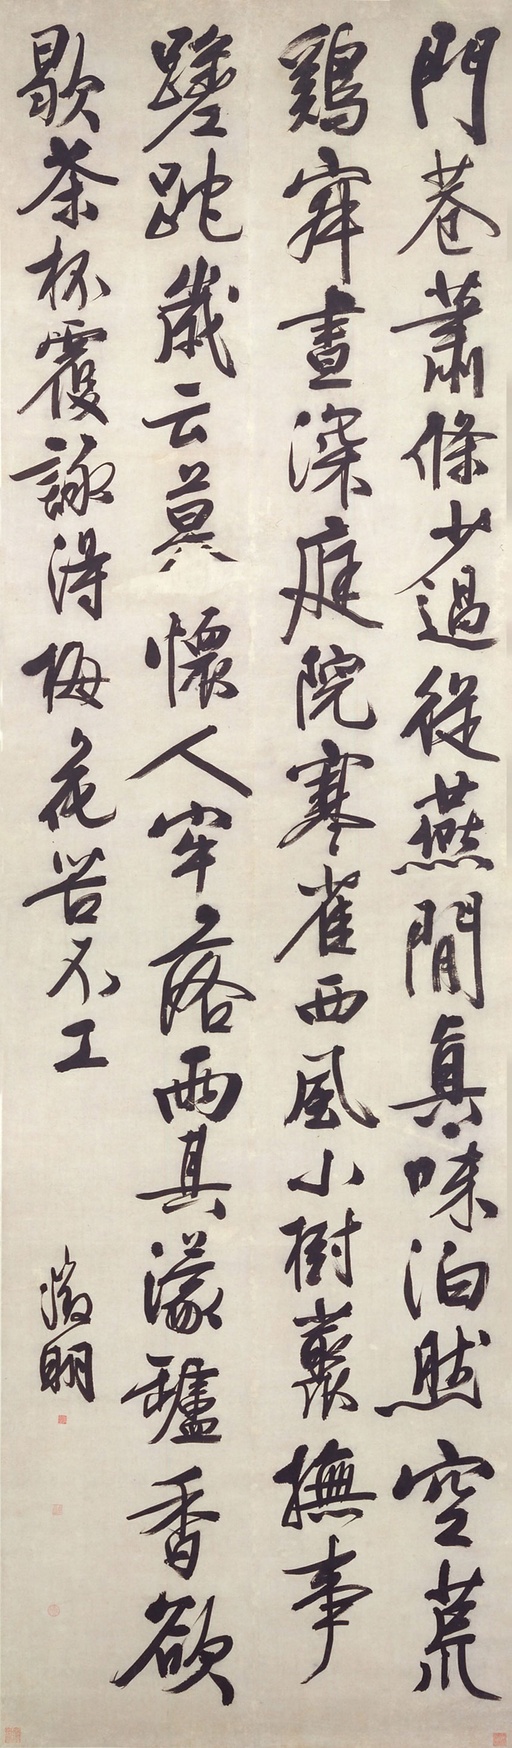 門巷蕭條少過從燕閒真味泊然空荒
鷄寂晝深庭院寒雀西風小樹叢撫事
蹉跎歲云莫懷人牢落雨其濛罏香欲
歇茶杯覆詠得梅花苦不工
徵明